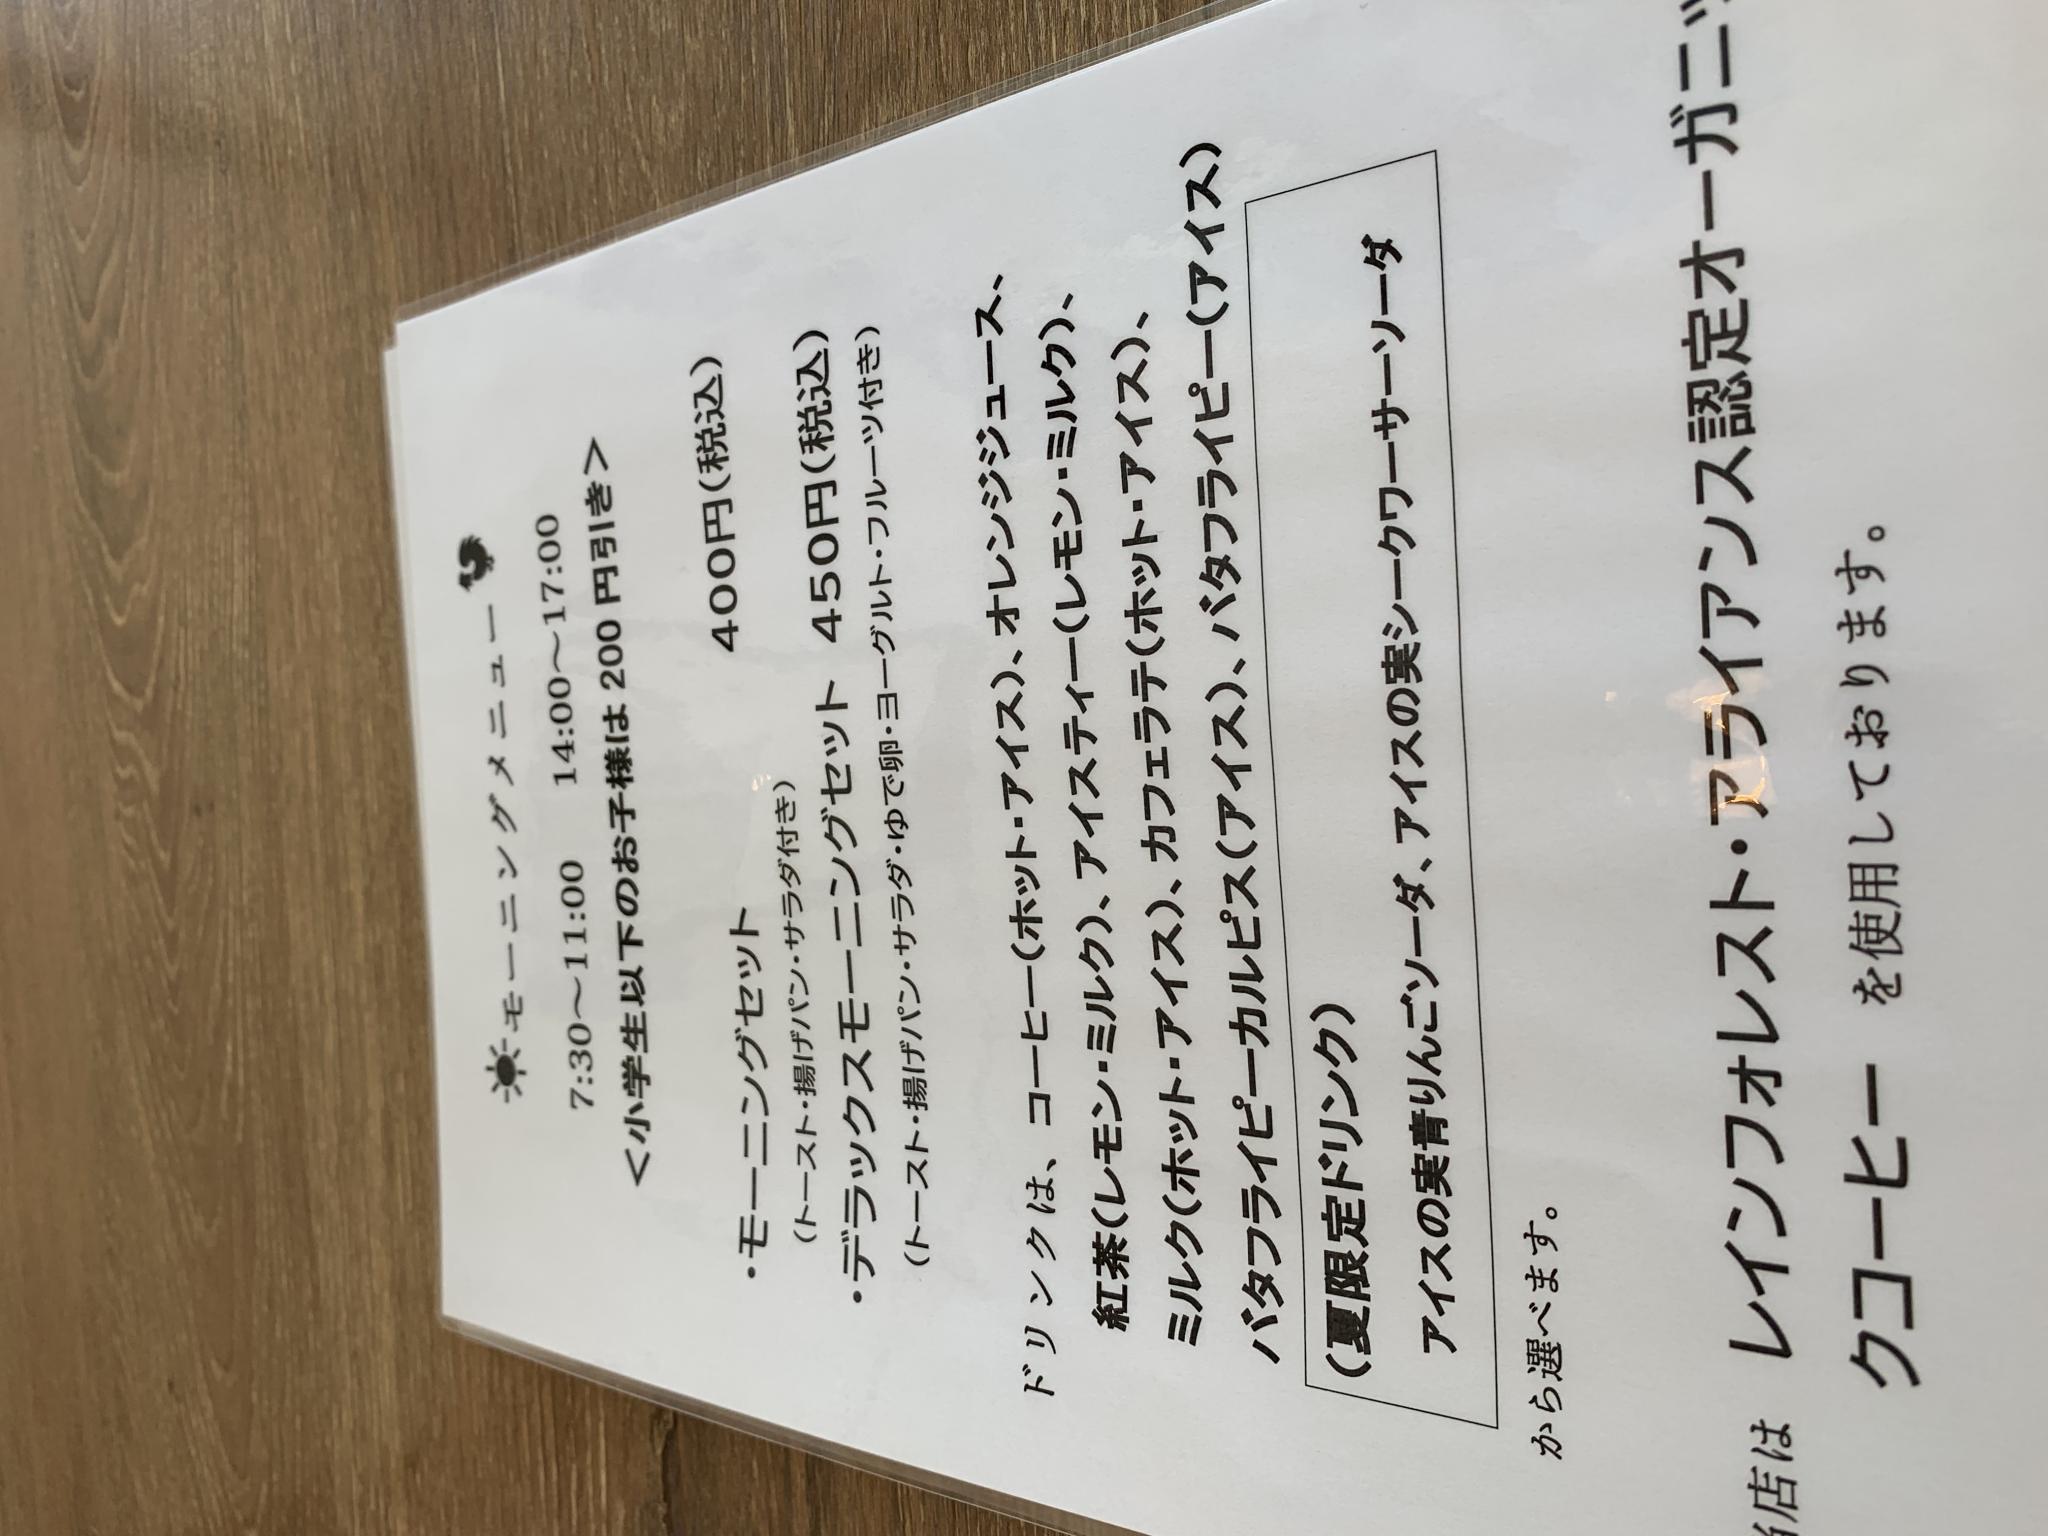 モーニングメニュー
7:30～11:00　14:00～17:00
＜小学生以下のお子様は 200 円引き＞
・モーニングセット　400円(税込)
(トースト・揚げパン・サラダ付き)
・デラックスモーニングセット　450円(税込)
(トースト・揚げパン・サラダ・ゆで卵・ヨーグルト・フルーツ付き)
ドリンクは、コーヒー(ホット・アイス)、オレンジジュース、
紅茶(レモン・ミルク)、アイスティー(レモン・ミルク)、
ミルク(ホット・アイス)、カフェラテ(ホット・アイス)、
バタフライピーカルピス(アイス)、バタフライピー(アイス)
(夏限定ドリンク)
アイスの実青りんごソーダ、アイスの実シークワーサーソーダ
から選べます。
当店は　レインフォレスト・アライアンス認定オーガニッ
クコーヒー　を使用しております。